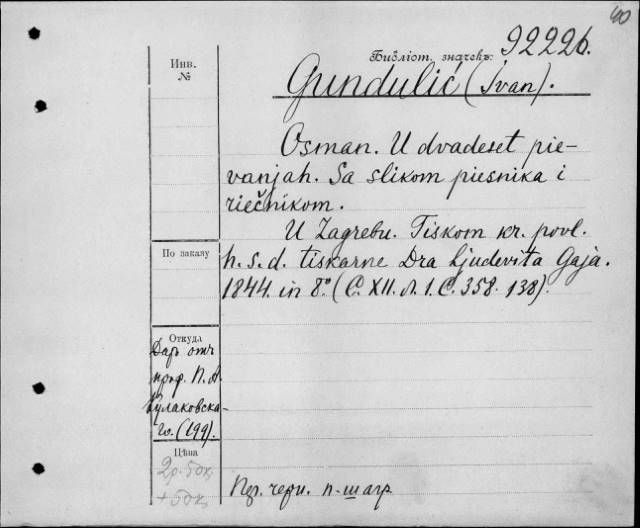 40
Библіот. значекъ: 92226.
Инв.
№
Gundulić (Ivan).
Osman. U dvadeset pie-
vanjah. Sa slikom piesnika i
riečnikom.
U Zagrebu. Tiskom kr. povl.
По заказу
h. s. d. tiskarne Dra Ljudevita Gaja.
1844. in 8º. (С. XII. л. 1. С. 358. 138).
Откуда
Даръ отъ
проф. П. А.
Кулаковска-
го. (199).
Цѣна
2р. 50к.
+ 50к.
черн. п-шагр.